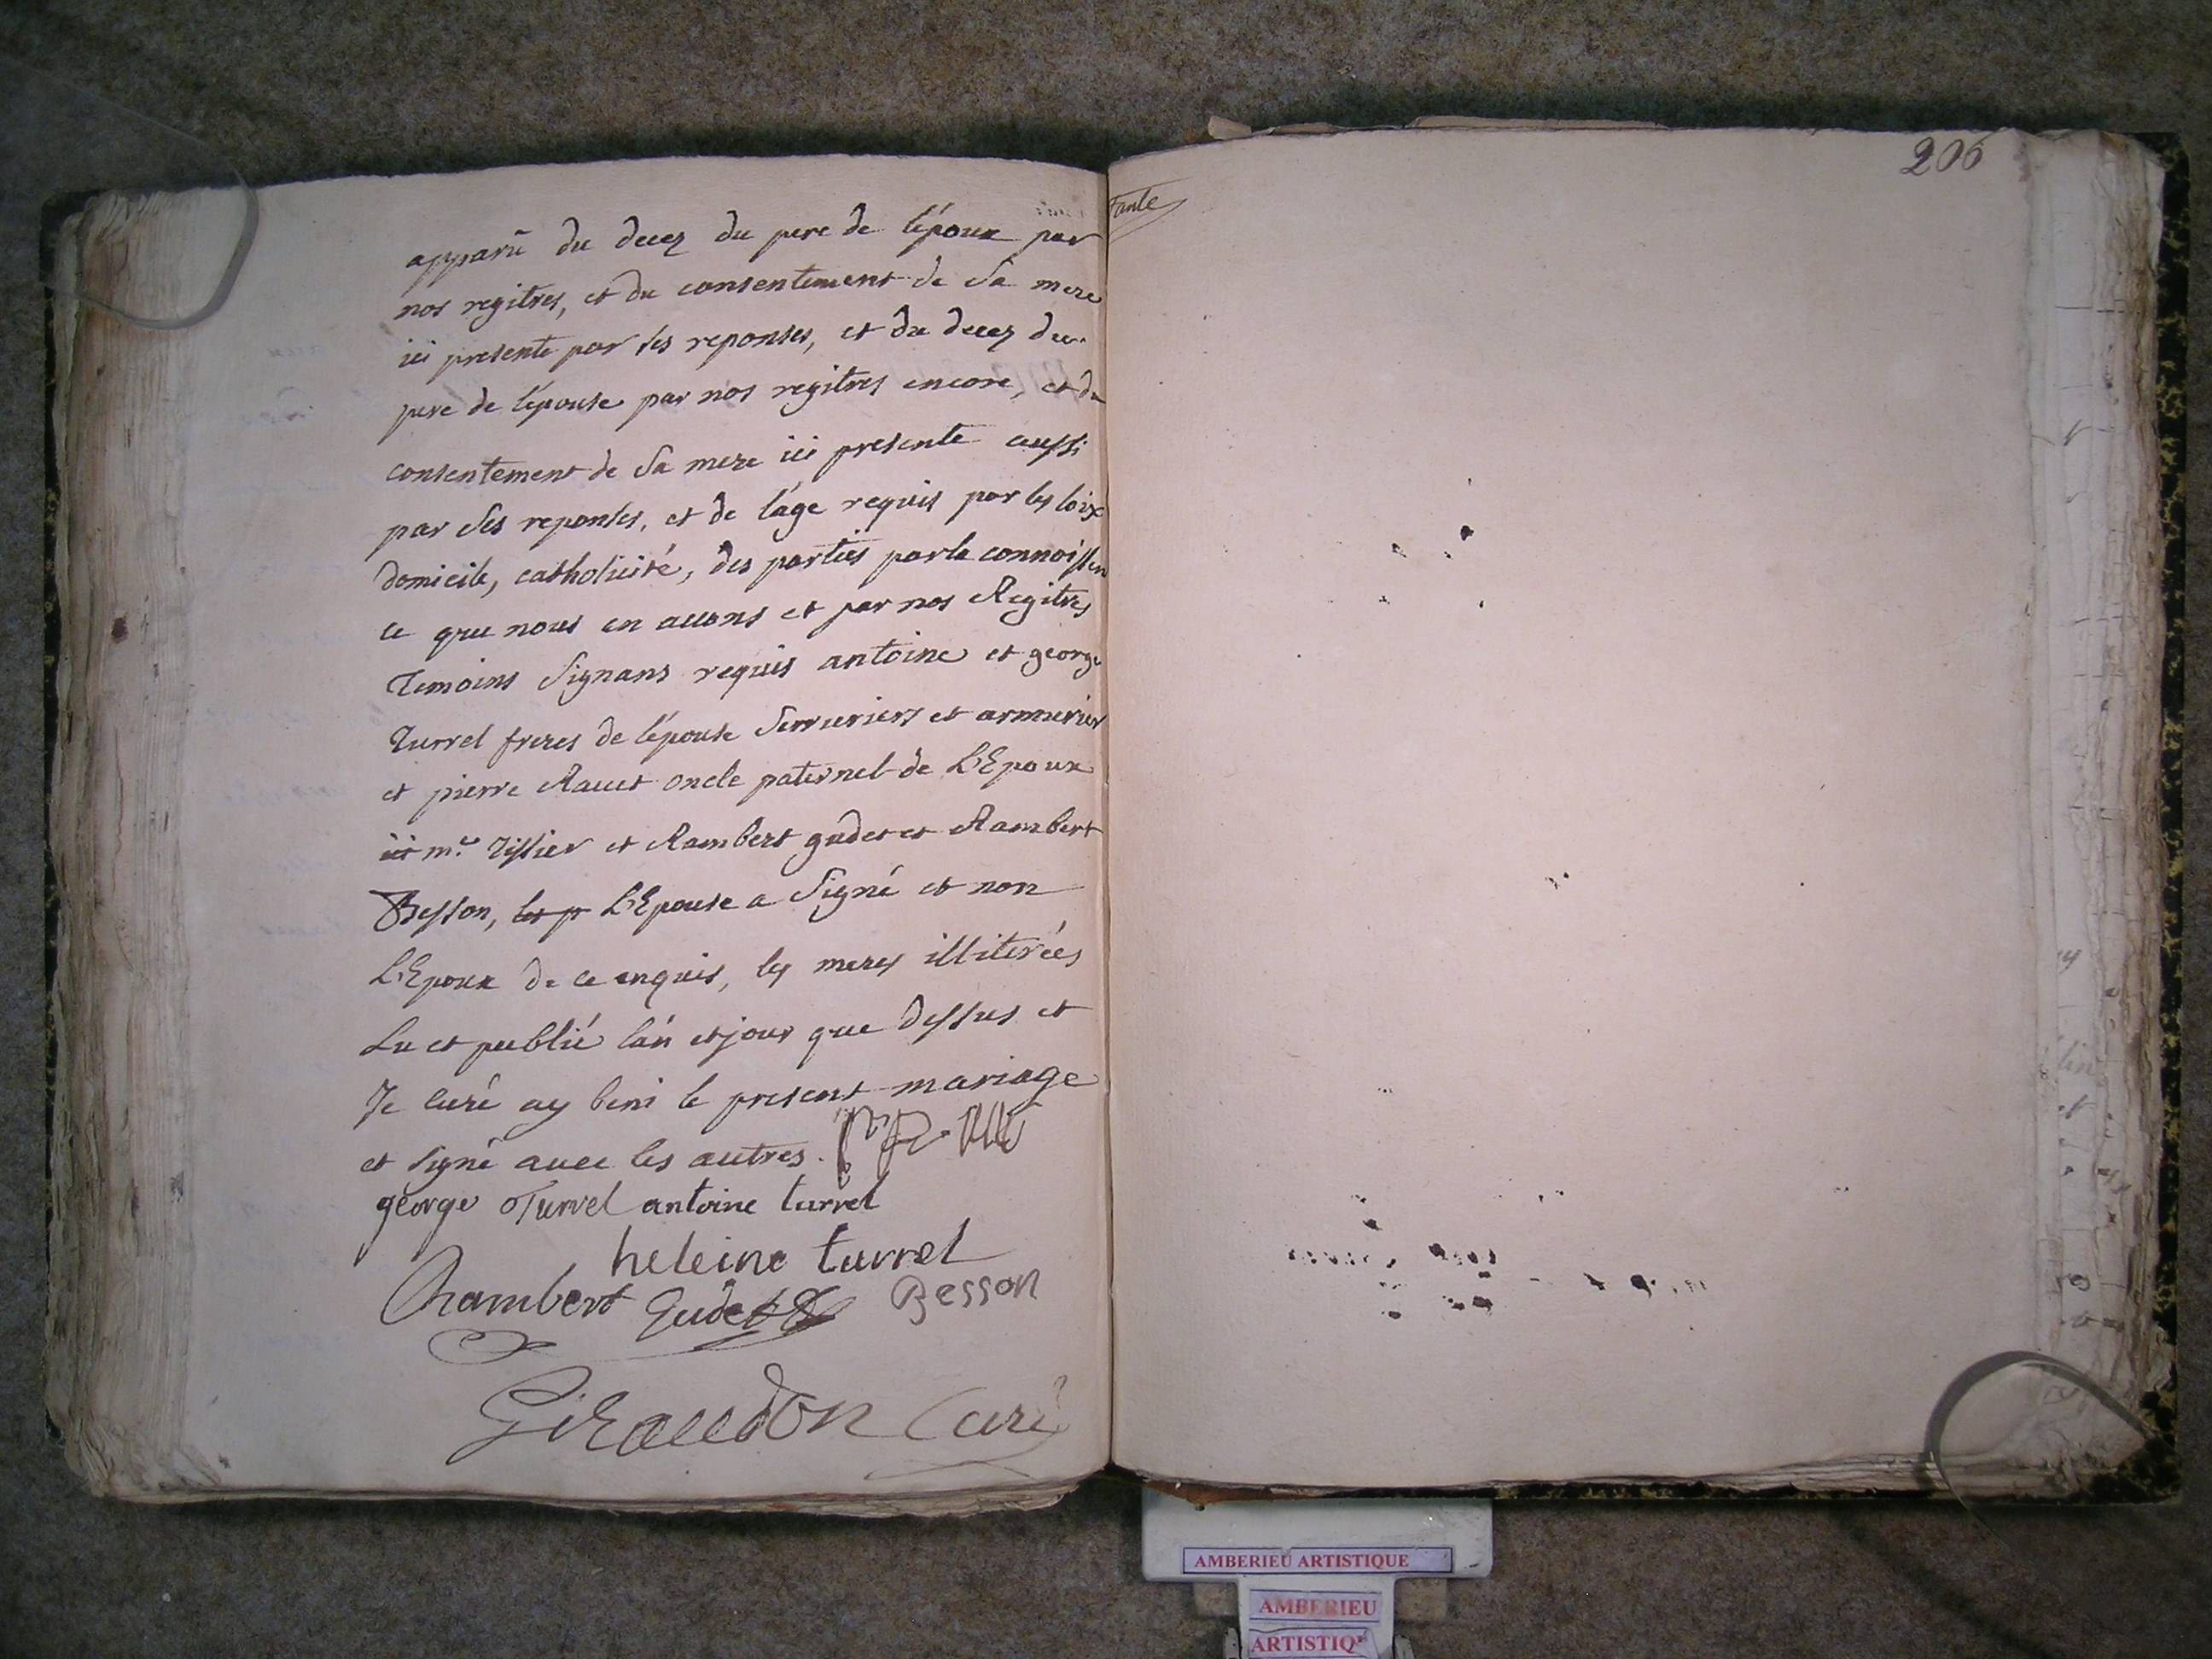 apparû du decez du pere de l'époux par
nos regitres, et du consentement de Sa mere
ici presente par ses reponses, et du decez du
pere de l'épouse par nos regitres encore, et du
consentement de Sa mere ici presente aussi
par Ses reponses, et de l'âge requis par les loix
domicile, catholicité, des parties par la connoissen
ce que nous en avons et par nos Regitres
Temoins Signans requis antoine et george
Turrel freres de l'épouse Serruriers et armurier
et pierre Ravet oncle paternel de L'Epoux
m.e Tissier et Rambert gudet et Rambert
Besson, L'Epouse a Signé et non
L'Epoux de ce enquis, les meres illiterées
Lu et publié l'an et jour que dessus et
Je curé ay beni le present mariage
et Signé avec les autres.
george Turrel antoine turrel
heleine turrel
Rambert Gudet Besson
Giraudon Curé
206
AMBERIEU ARTISTIQUE
AMBERIEU
ARTISTIQ